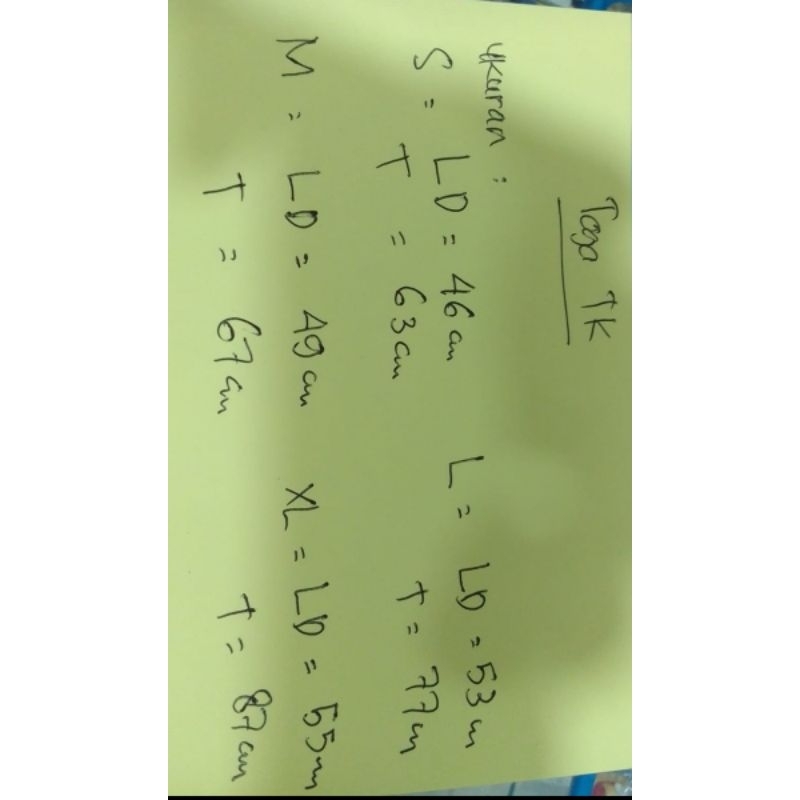 Toga TK
Ukuran :
S = LD = 46 cm
T = 63 cm
M = LD = 49 cm
T = 67 cm
L = LD = 53 cm
T = 77 cm
XL = LD = 55 cm
T = 87 cm